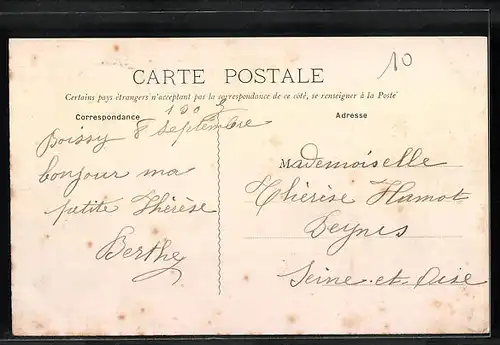 10
CARTE POSTALE
Certains pays étrangers n'acceptant pas la correspondance de ce côté, se renseigner à la Poste
Correspondance
Adresse
Poissy 8 Septembre
bonjour ma
petite Thérèse
Berthe
Mademoiselle
Thérèse Hamot
Seine-et-Oise